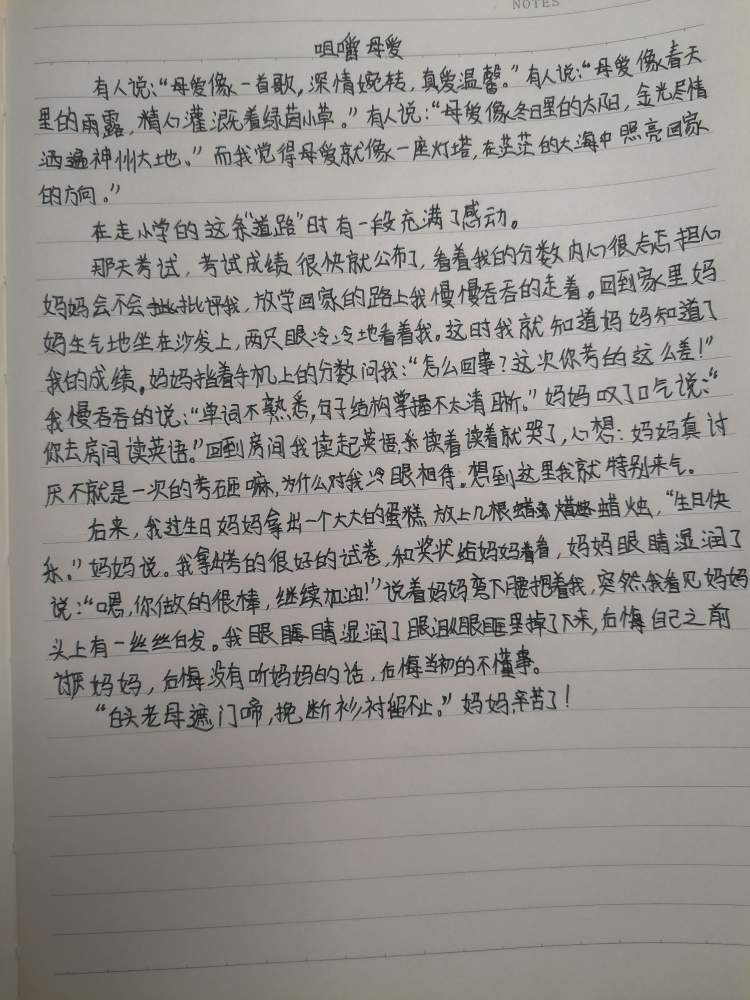 NOTES
咀嚼母爱
有人说:“母爱像一首歌,深情婉转,真爱温馨。”有人说:“母爱像春天
里的雨露,精心灌溉着绿茵小草。”有人说:“母爱像冬日里的太阳,金光尽情
洒遍神州大地。”而我觉得母爱就像一座灯塔,在茫茫的大海中照亮回家
的方向。”
在走小学的这条“道路”时有一段充满了感动。
那天考试,考试成绩很快就公布了,看着我的分数内心很焦担心
妈妈会不会批评我,放学回家的路上我慢慢吞吞的走着。回到家里妈
妈生气地坐在沙发上,两只眼冷冷地看着我。这时我就知道妈妈知道了
我的成绩。妈妈指着手机上的分数问我:“怎么回事?这次你考的这么差!”
我慢吞吞的说:“单词不熟悉,句子结构掌握不太清晰。”妈妈叹了口气说:“
你去房间读英语。”回到房间我读起英语,读着读着就哭了,心想:妈妈真讨
厌不就是一次的考砸嘛,为什么对我冷眼相待。想到这里我就特别来气。
后来,我过生日妈妈拿出一个大大的蛋糕放上几根蜡烛,“生日快
乐。”妈妈说。我拿出考的很好的试卷,和奖状给妈妈看看,妈妈眼睛湿润了
说:“嗯,你做的很棒,继续加油!”说着妈妈弯下腰抱着我,突然我看见妈妈
头上有一丝丝白发。我眼睛湿润了眼泪从眼眶里掉了下来,后悔自己之前
讨厌妈妈,后悔没有听妈妈的话,后悔当初的不懂事。
“白头老母遮门啼,挽断衫衬留不止。”妈妈辛苦了!